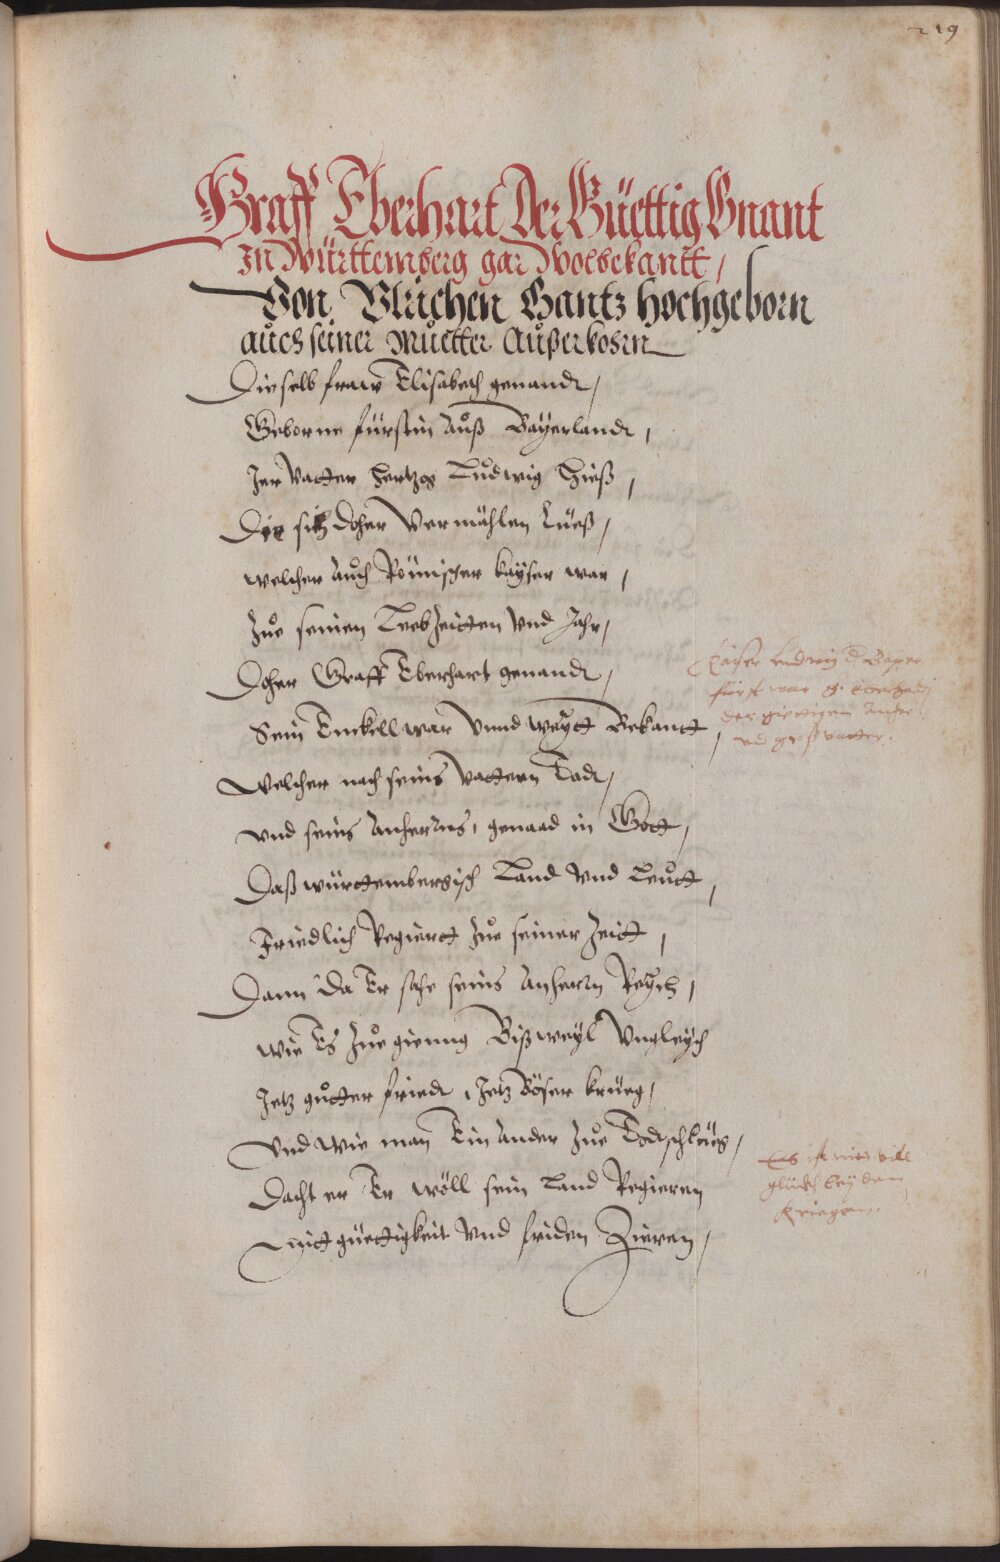 219
Graff Eberhart Der Güettig Gnant
In Württemberg gar Wolbekantt /
Von Ulrichen Gantz hochgeborn
auch seiner Muetter Außerkohrn
Dieselb fraw Elisabeth genandt /
Geborne fürstin Auß Bayerlandt,
Jer Vatter Hertzog Ludwig Hieß,
Die sich doher Vermählen Lüeß,
welcher Auch Römischer kayser war,
Zue seinen Leebzeitten Vnd Jahr,
Doher Graff Eberhart genandt,
Sein Enckell war Vnnd weytt Bekantt,
Welcher nach seins Vattern Todt,
vnd seins Anherrns, genaad in Gott,
Daß württembergisch Land Vnd Leutt,
Friedlich Regiertt Zue seiner Zeitt,
Dann Da Er sahe seins Anherrn Reych,
wie Es Zue gienng Bißweyl Vngleych
Jetz gutter friedt, Jetz Böser krüeg,
Vnd wie man Ein Ander Zue Todt schlüeg,
Dacht er Er wöll sein Land Regieren
Mitt güettigkeit Vnd friden Zieren,
Kaiser Ludwig d Bayer
fürst war G. Eberhardj
des giettigen Anher
vd großvatter.
Es ist nit vill
glückh bey den
kriegen.